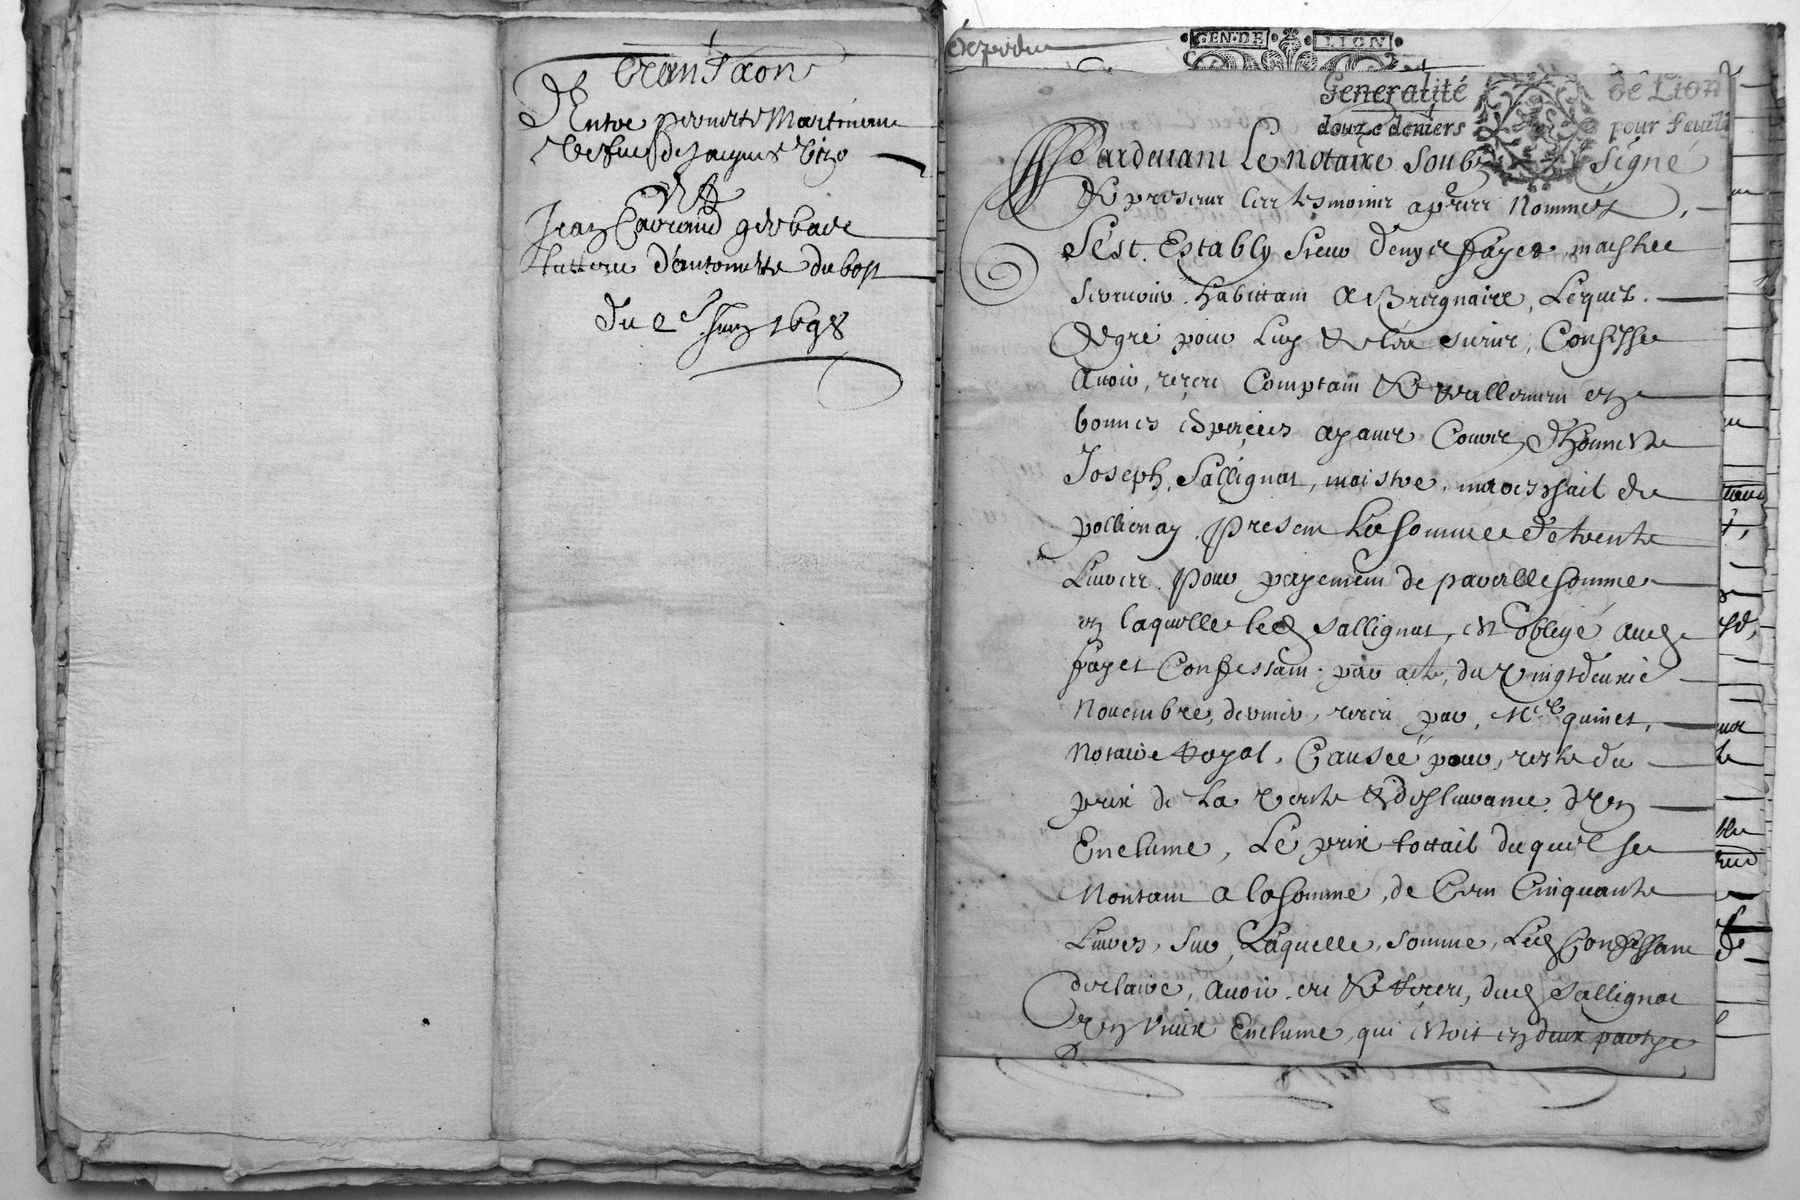 Transaction
Entre pernette Martiniere
vefue de Jacques
Et
Jean Cauraud
d'antoinette dubost
du 2e Juin 1698
Expedie
GEN·DE LION
Generalité de Lion
douze deniers pour feuill
Pardeuant Le notaire Soubz Signé
Et presens les tesmoins apres Nommez,
S'est Estably Sieur Fayet maistre
Serrurier habittant a Brignaix, Lequel
de gré pour Luy Et les siens, Confesse
Auoir, receu Comptant Et reallement en
bonnes especes ayant Cours, d'honneste
Joseph, Sallignat, maistre, mareschail de
pollienay, present La somme de trente
Liures, pour payement de pareille somme
en laquelle led Sallignat, est obligé aud
fayet Confessant par acte, du Vingt
Nouembre, dernier, receu par, Me quinet,
Notaire Royal, Causée pour, reste du
prix de La vente Et desliurance d'vn
Enclume, Le prix tottail duquel se
Montant a la somme, de Cent Cinquante
Liures, sur, Laquelle, somme, Led Confessant
declaire, auoir eu Et receu, dud Sallignat
Vn vieux Enclume, qui estoit en deux